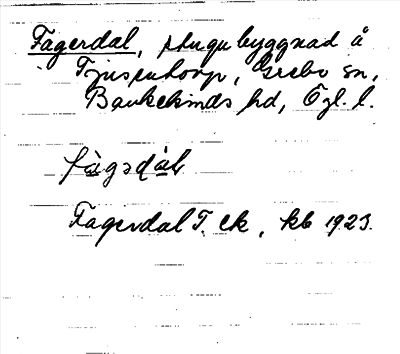 Fagerdal, stuga byggnad å
Tjusentorp, Grebo sn,
Bankekinds hd, Ögl. l.
fàgɘdàl
Fagerdal T. ek, kb 1923.